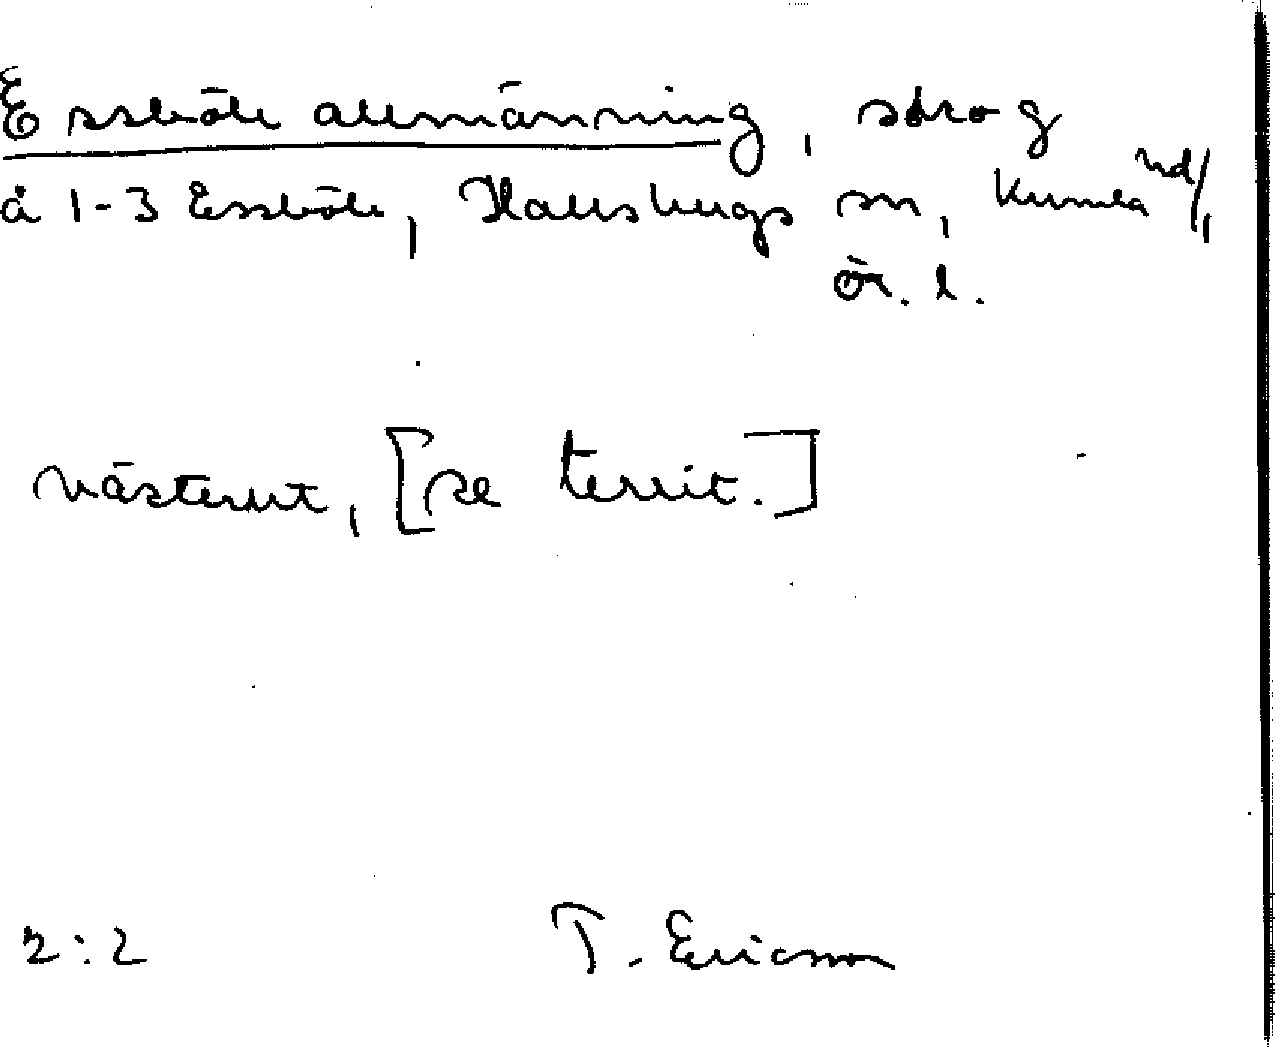 Essleböle allmänning, skog
å 1-3 Essleböle, Hallsbergs sn, Kumla hd,
Ör. l.
västerut, [se territ.]
2:2 T. Ericsson